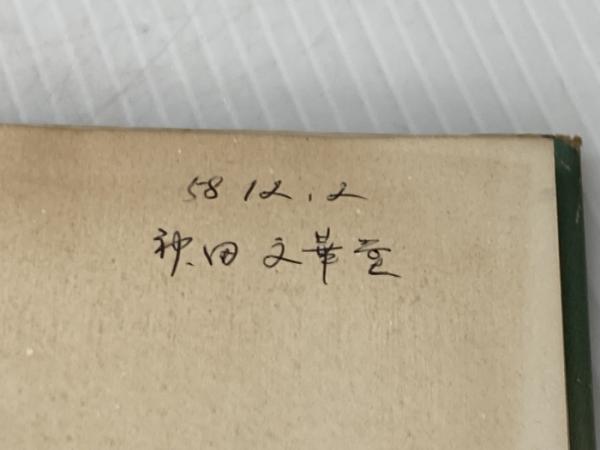 58 12.2
神田 文華堂